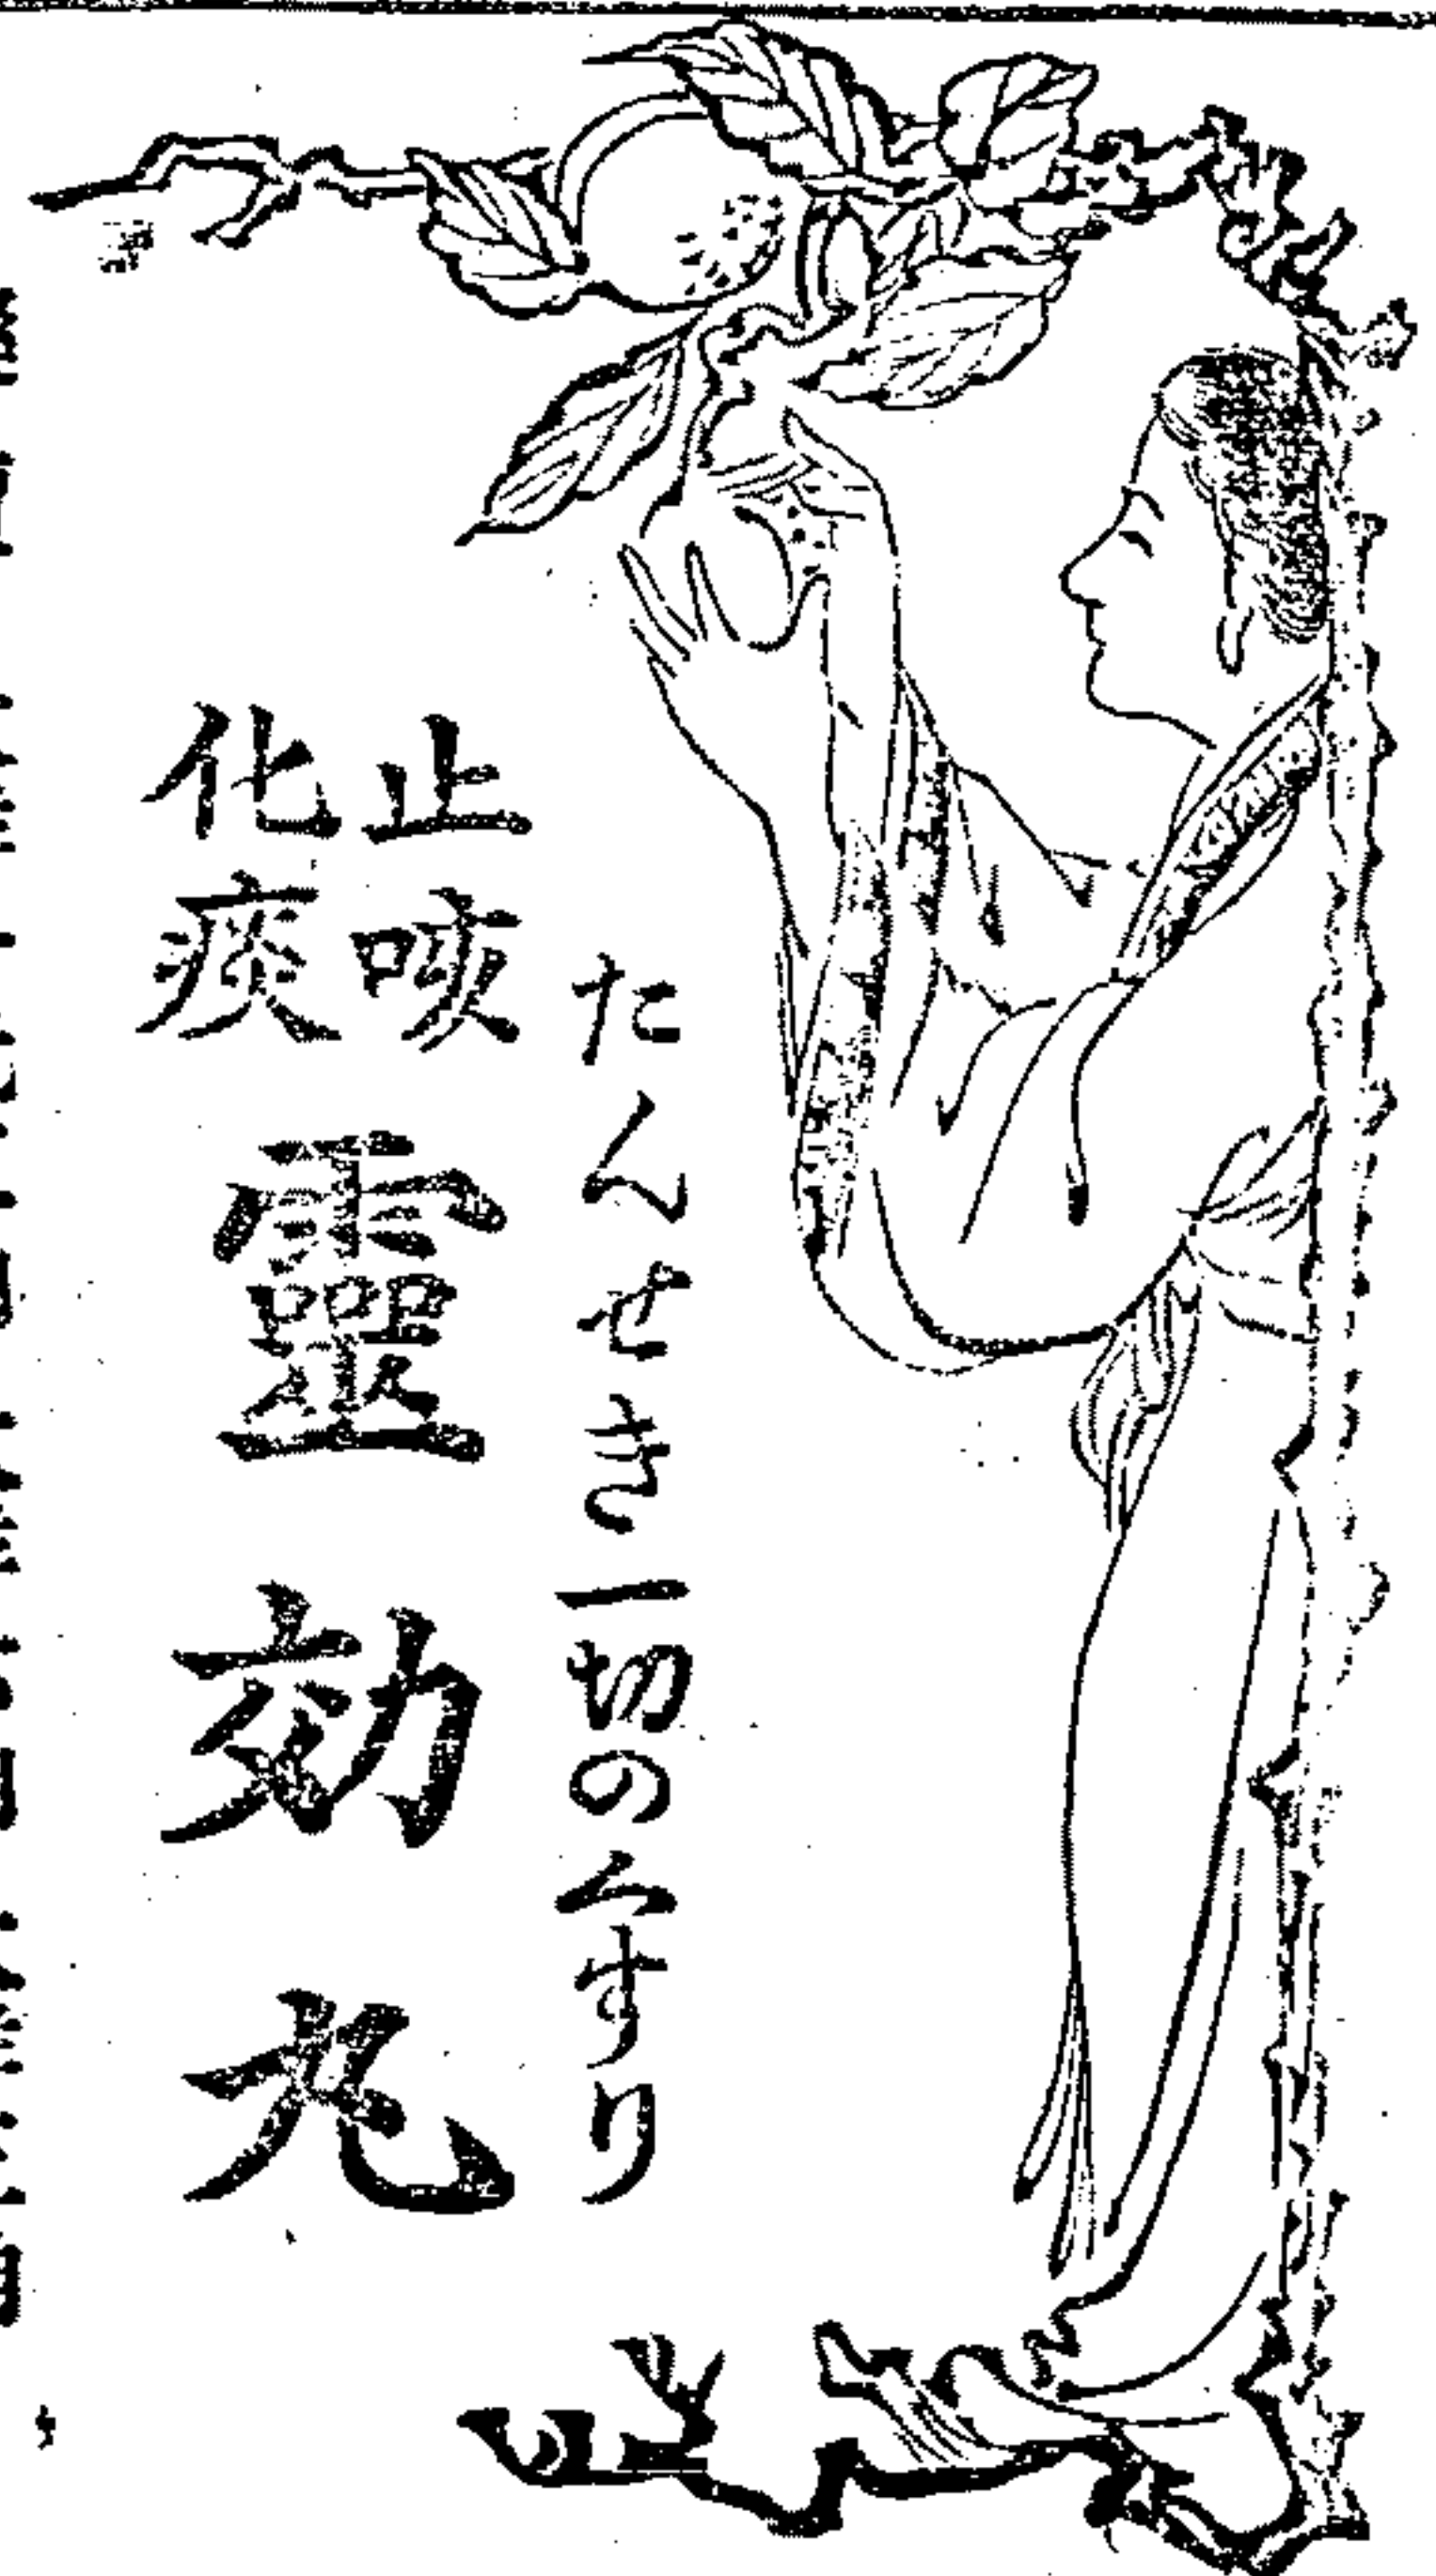 たんせき一切のくすり
止咳
化痰
靈効丸